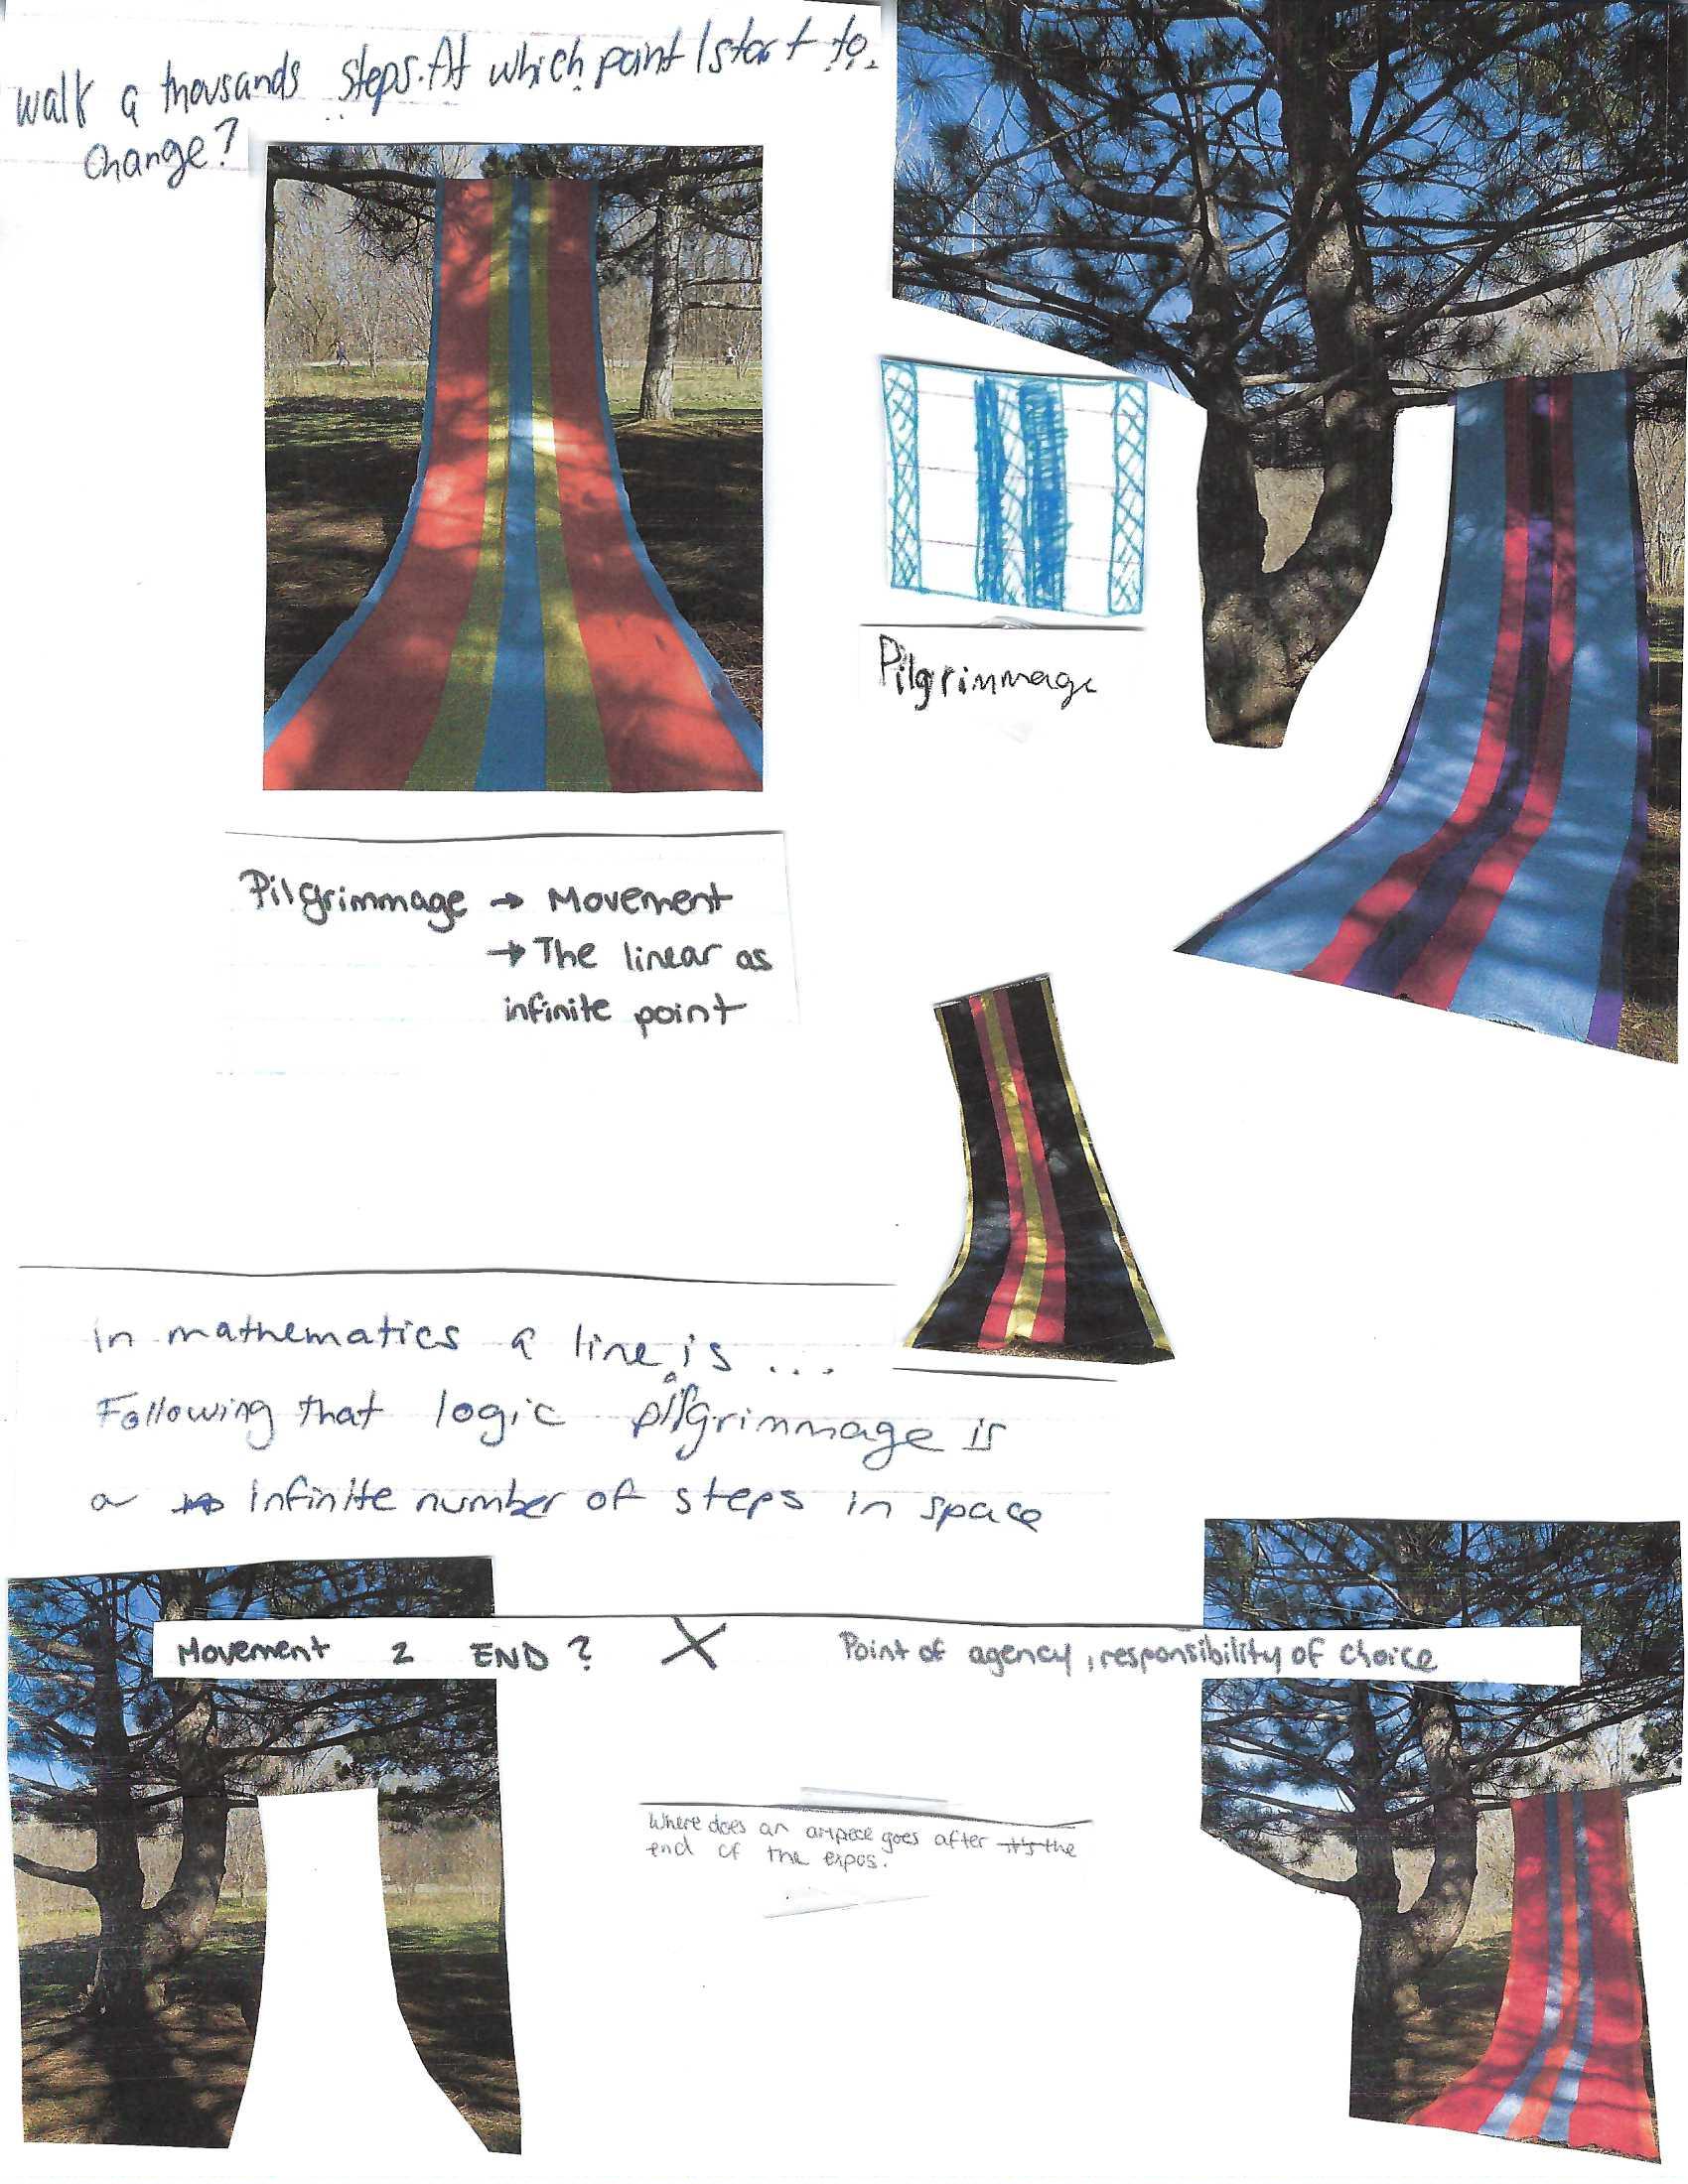 walk a thousands steps. At which point I start to
change?
Pilgrimmage
Pilgrimmage → Movement
→ The linear as
infinite point
in mathematics a line is ...
Following that logic a pilgrimmage is
a infinite number of steps in space
Movement 2 END? X Point of agency, responsibility of choice
Where does an artpiece goes after it's the
end of the expos.